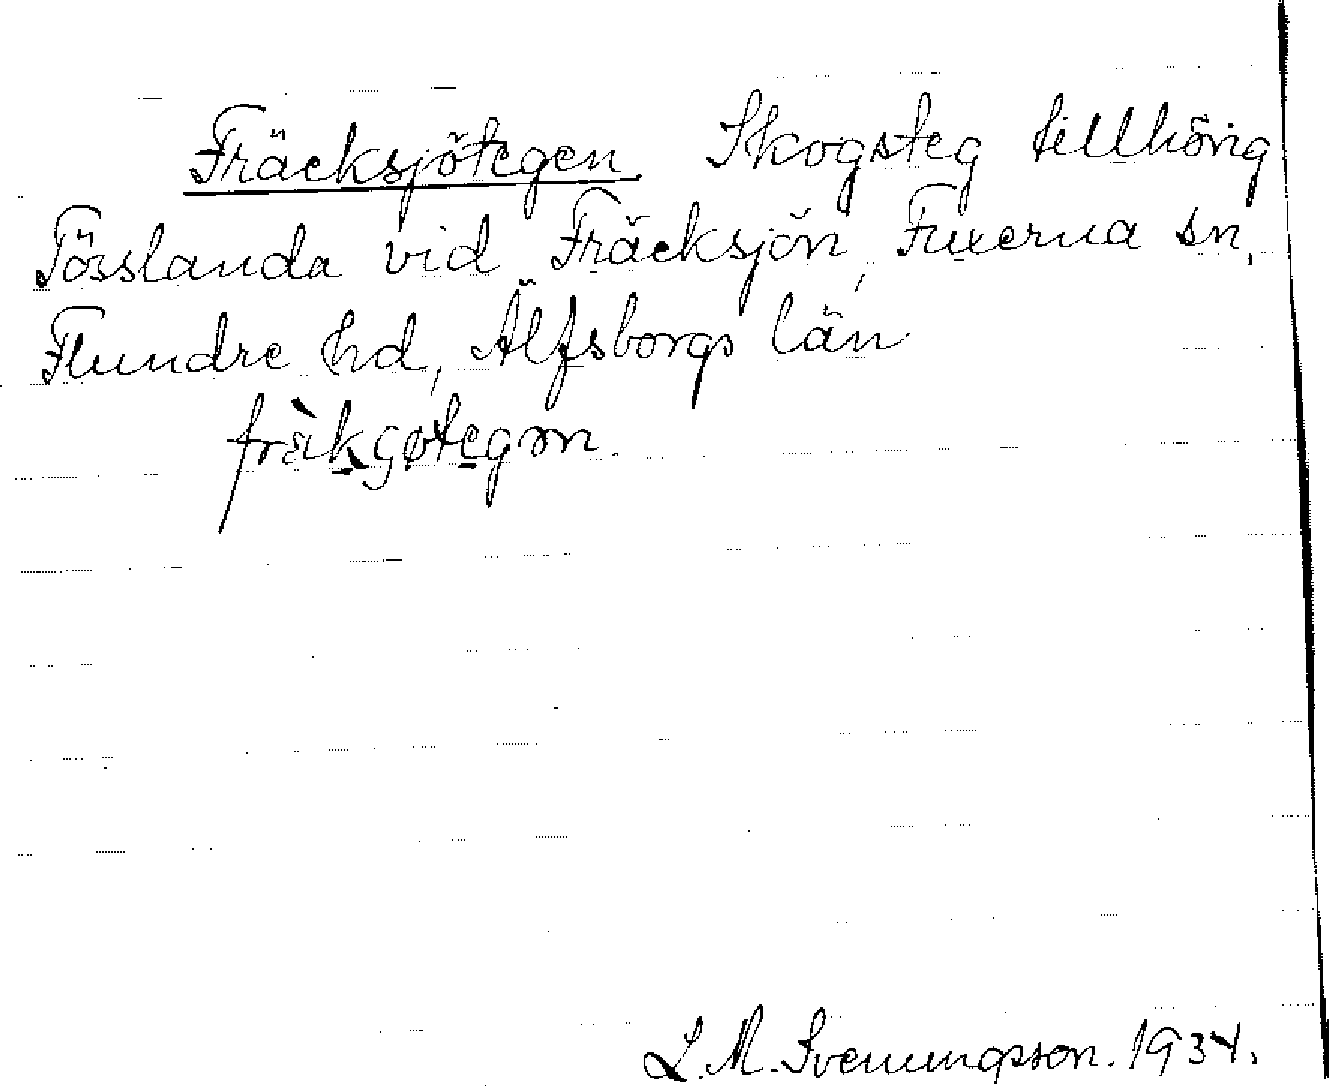 Fräcksjötegen Skogsteg tillhörig
Tösslanda vid Fräcksjön, Fuxerna sn,
Flundre hd, Älfsborgs län
L. M. Svenungsson. 1934.